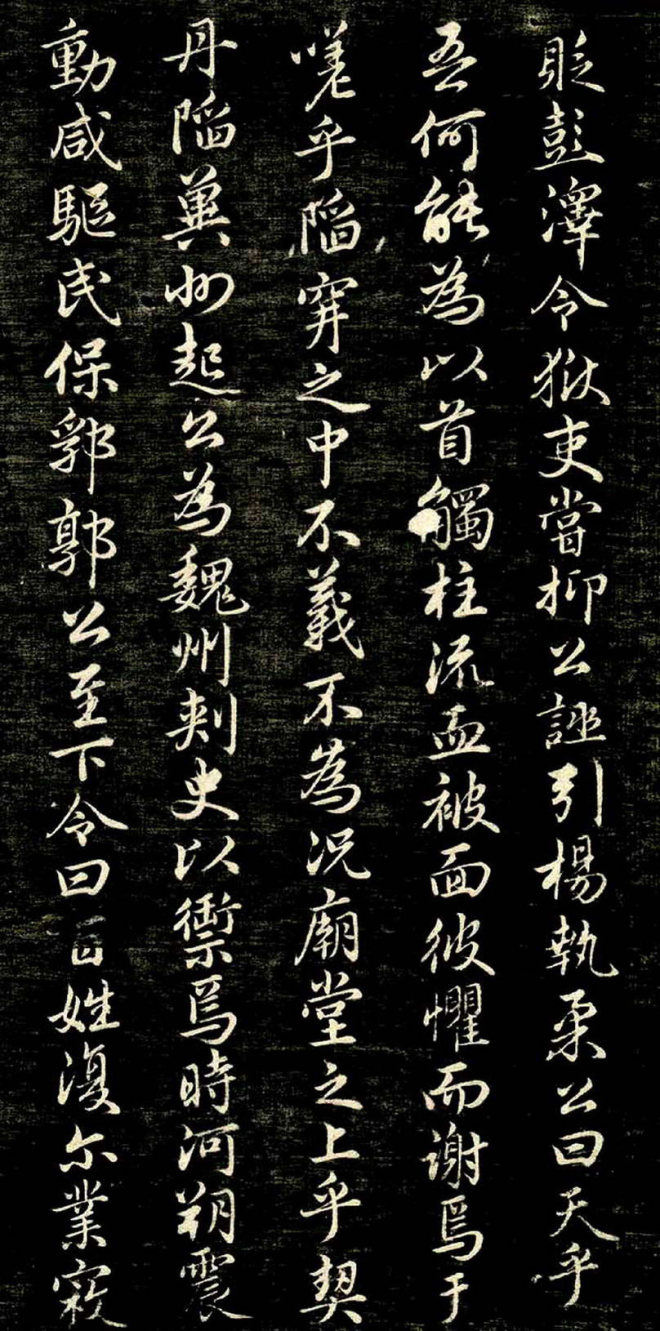 貶彭澤令獄吏嘗抑公誣引楊執柔公曰天乎
吾何能為以首觸柱流血被面彼懼而謝焉于
嗟乎陷穽之中不義不為况廟堂之上乎契
丹陷冀州起公為魏州刺史以禦焉時河朔震
動咸驅民保郛郭公至下令曰百姓復尒業寇